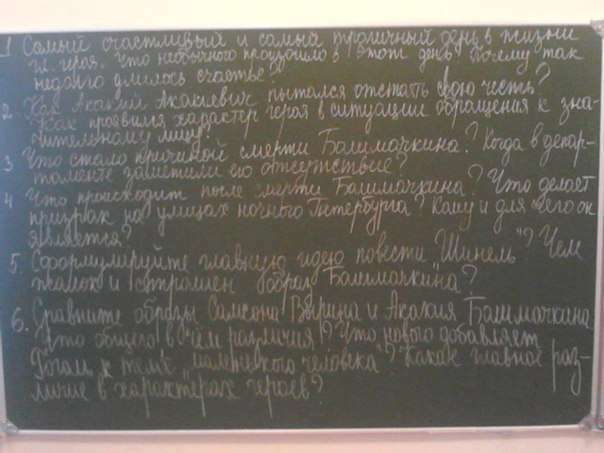 1 Самый счастливый и самый трагичный день в жизни
гл. героя. Что необычного произошло в этот день? Почему так
недолго длилось счастье?
2. Как Акакий Акакиевич пытался отстоять свою честь?
Как проявился характер героя в ситуации обращения к зна-
чительному лицу?
3 Что стало причиной смерти Башмачкина? Когда в депар-
таменте заметили его отсутствие?
4 Что происходит после смерти Башмачкина? Что делает
призрак на улицах ночного Петербурга? Кому и для чего он
является?
5. Сформулируйте главную идею повести "Шинель"? Чем
жалок и страшен образ Башмачкина?
6. Сравните образы Самсона Вырина и Акакия Башмачкина.
Что общего, в чём различия? Что нового добавляет
Гоголь к теме "маленького человека"? Какое главное раз-
личие в характерах героев?